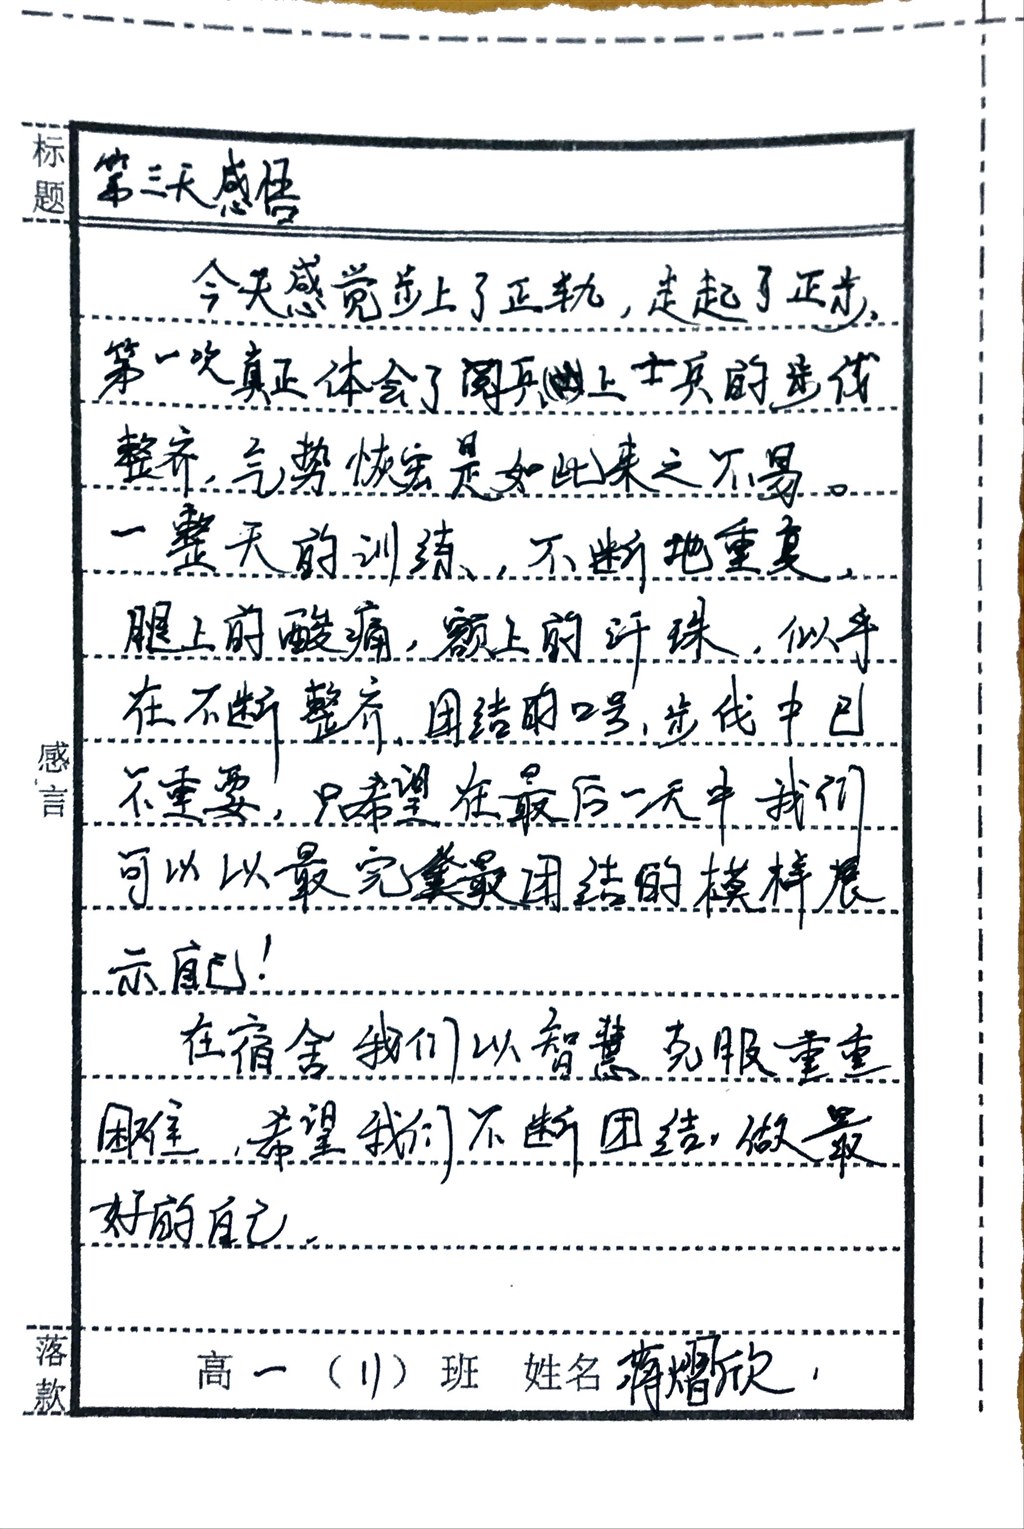 标题
第三天感悟
今天感觉步上了正轨，走起了正步，
第一次真正体会了阅兵上士兵的步伐
整齐，气势恢宏是如此来之不易。
一整天的训练，不断地重复，
腿上的酸痛，额上的汗珠，似乎
在不断整齐、团结的口号，步伐中已
不重要，只希望在最后一天中我们
可以以最完美最团结的模样展
示自己！
在宿舍我们以智慧克服重重
困难，希望我们不断团结，做最
好的自己。
感言
落款
高一（11）班 姓名 蒋熠欣